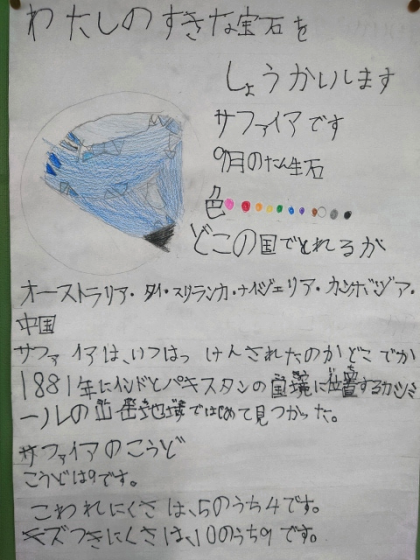 わたしのすきな宝石を
しょうかいします
サファイアです
9月のたん生石
色
どこの国でとれるか
オーストラリア・タイ・スリランカ・ナイジェリア・カンボジア・
中国
サファイアは、いつはっけんされたのかどこでか
1881年にインドとパキスタンの境に位置するカシミ
ールの山岳地域ではじめて見つかった。
サファイアのこうど
こうどは9です。
こわれにくさは、5のうち4です。
キズつきにくさは、10のうち9です。